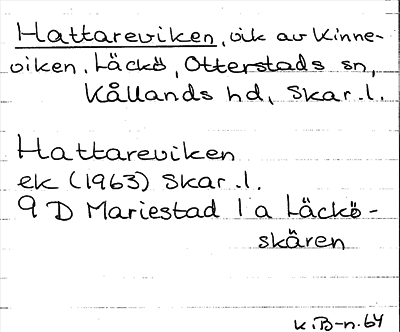 Hattareviken, vik av Kinne-
viken, Läckö, Otterstads sn,
Kållands hd, Skar.l.
Hattareviken
ek (1963) Skar.l.
9 D Mariestad 1 a Läckö-
skären
K.B-n. 64